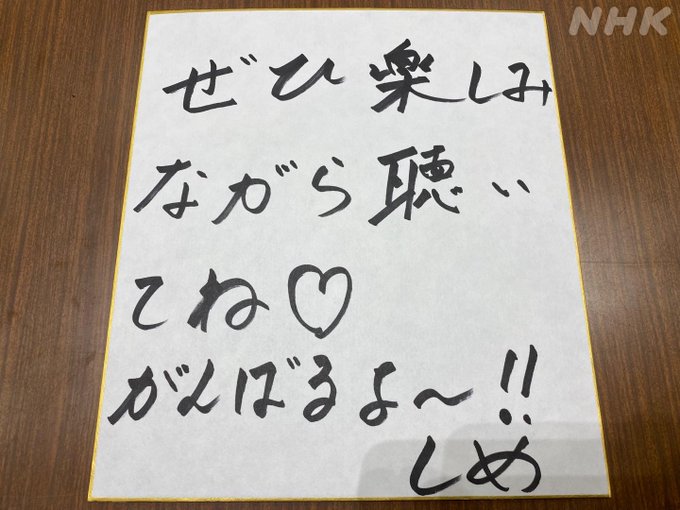 NHK
ぜひ楽しみ
ながら聴い
てね♡
がんばるよ〜!!
しめ